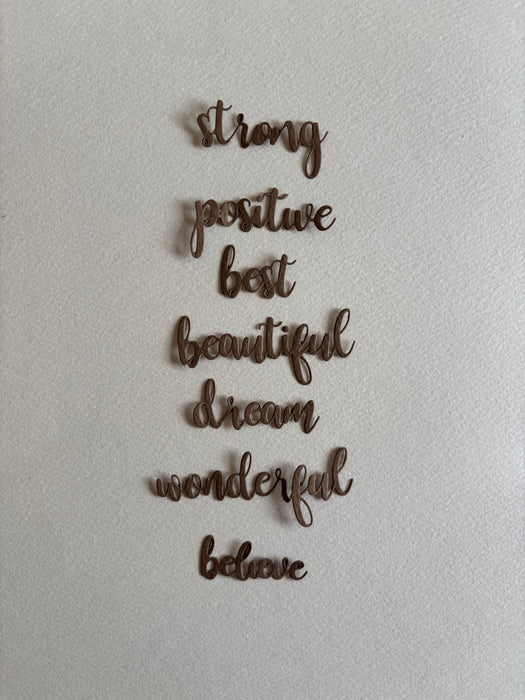 strong
positive
best
beautiful
dream
wonderful
believe